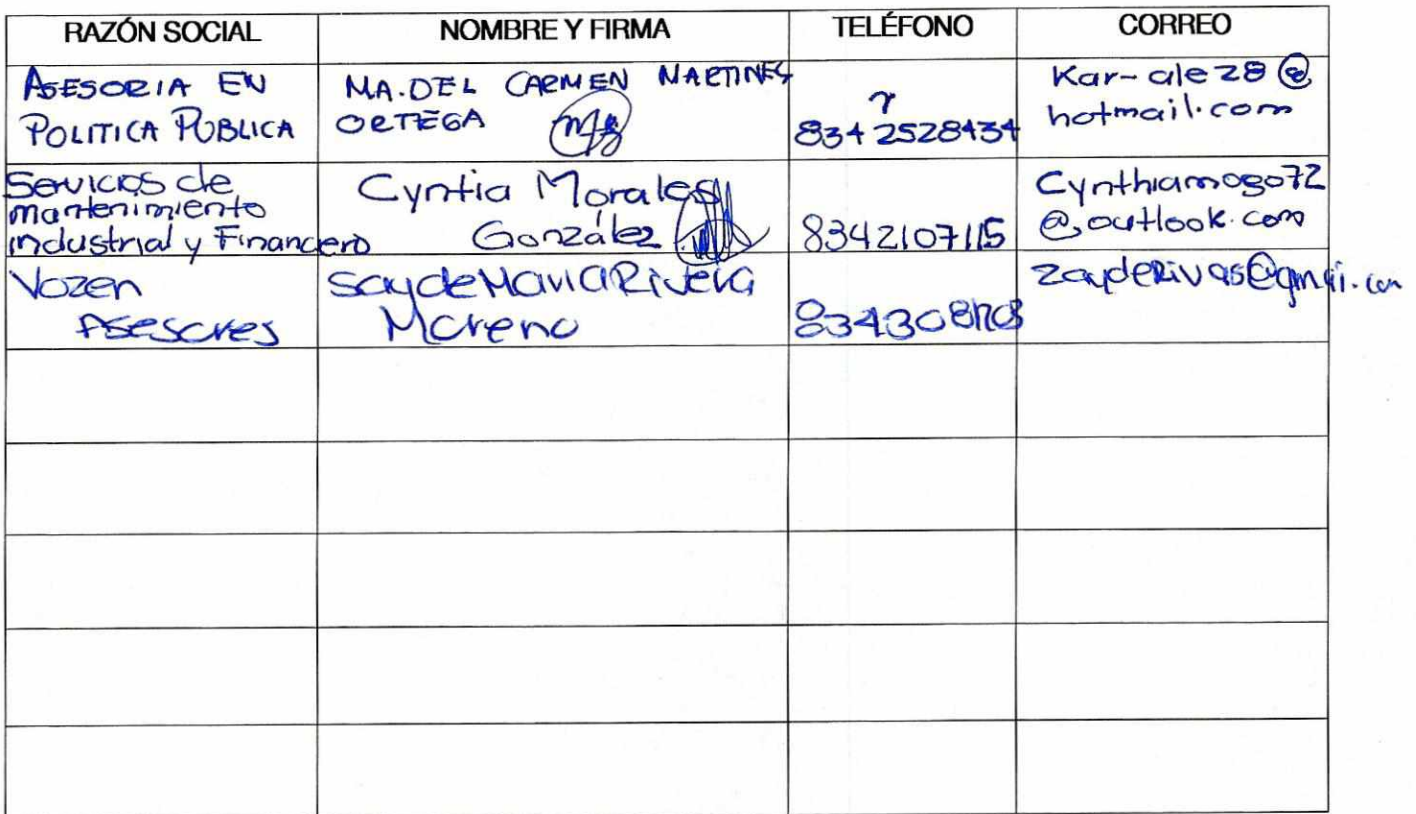 RAZÓN SOCIAL NOMBRE Y FIRMA TELÉFONO CORREO
ASESORIA EN
POLITICA PÚBLICA
MA. DEL CARMEN MARTINES
ORTEGA
8342528434
Kar-ale28@
hotmail.com
Servicios de
mantenimiento
industrial y Financero
Cyntia Morales
González
8342107115
Cynthiamogo72
@outlook.com
Vozen
Asesores
Sayde Maria Rivera
Moreno
zayderivas@gmai.com